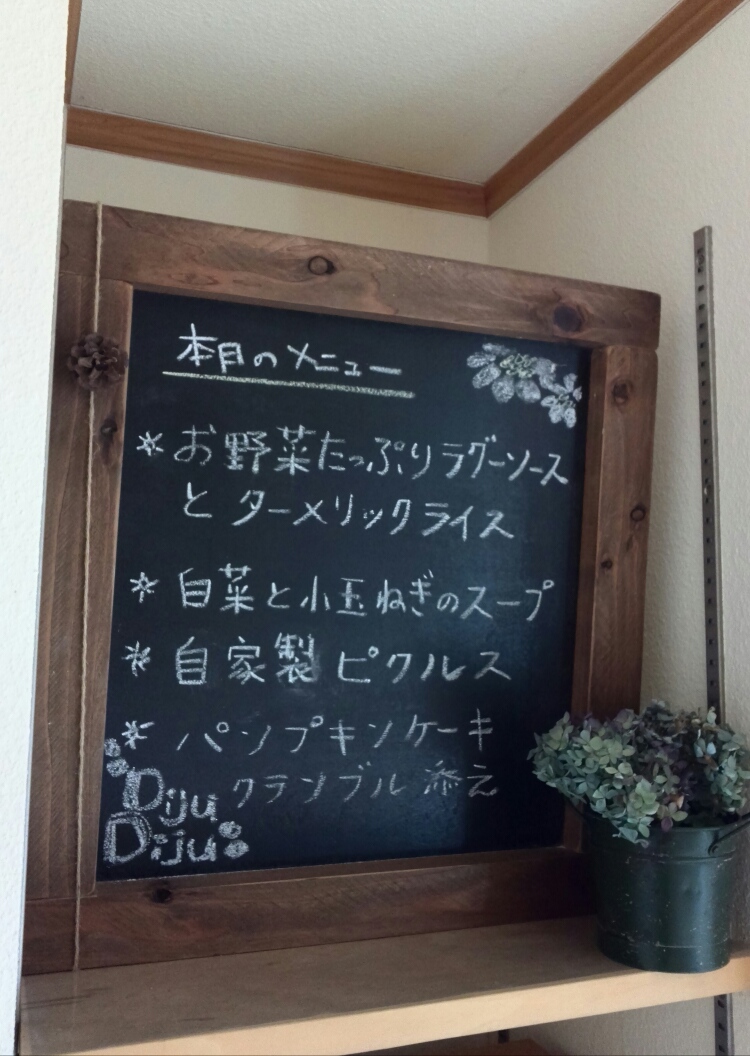 本日のメニュー
* お野菜たっぷりラグーソース
と ターメリックライス
* 白菜と小玉ねぎのスープ
* 自家製 ピクルス
* パンプキンケーキ
クランブル 添え
Diju
Diju